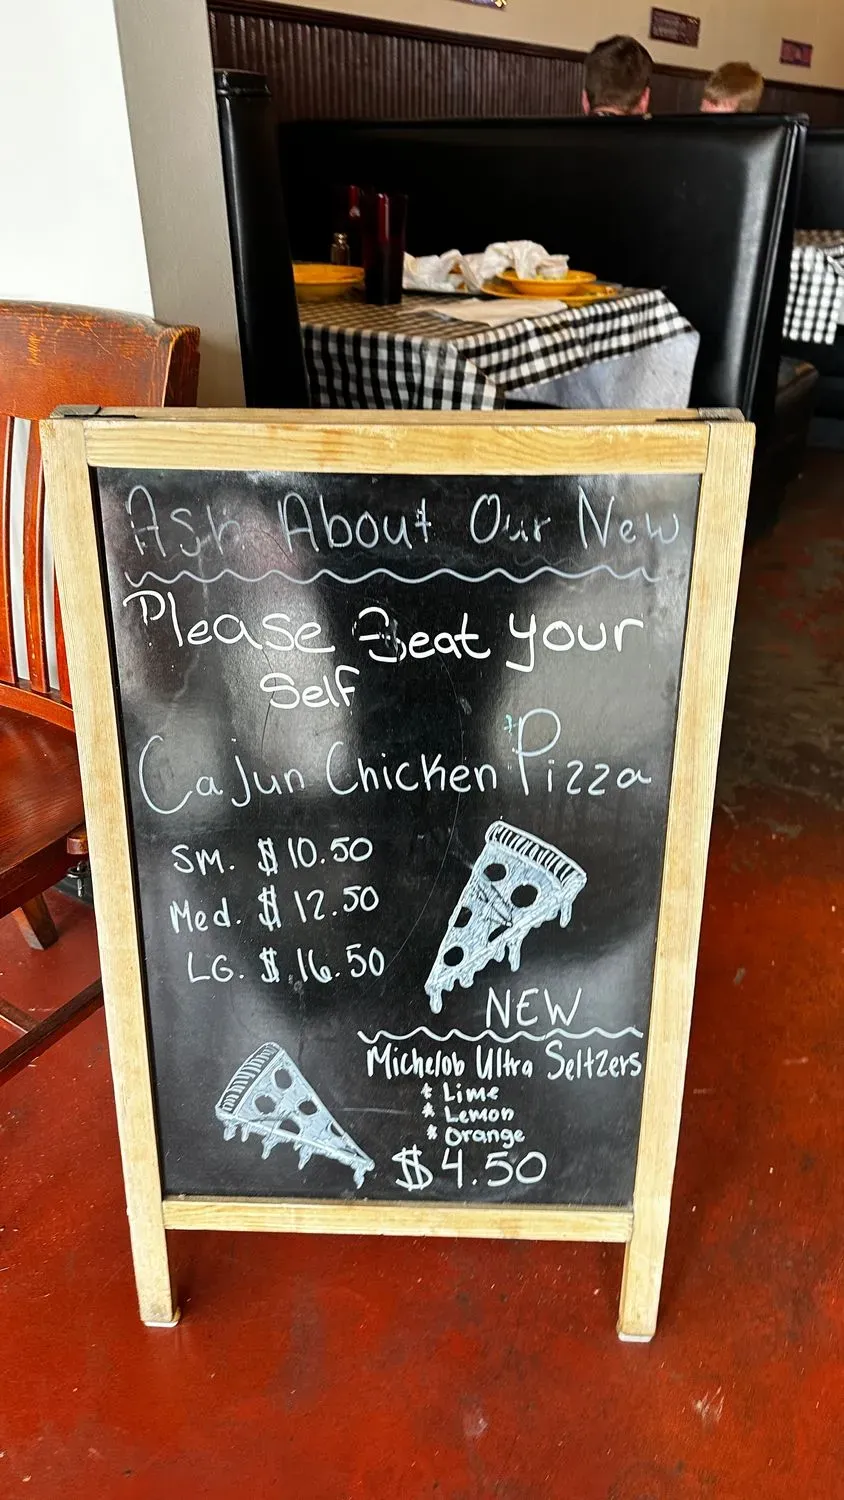 Ask About Our New
Please Seat your
Self
Cajun Chicken Pizza
SM. $10.50
Med. $12.50
LG. $16.50
NEW
Michelob Ultra Seltzers
* Lime
* Lemon
* Orange
$4.50